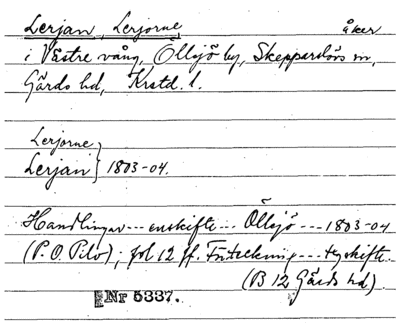 Lerjan, Lerjorne, åker
i Västre vång, Öllsjö by, Skepparslövs sn,
Gärds hd, Krstd. l.
Lerjorne
Lerjan } 1803-04.
Handlingar --- enskifte --- Öllsjö --- 1803-04
(P. O. Pilo); fol 12 ff. Förteckning --- egoskifte
(B 12 Gärds hd)
Nr 5337.